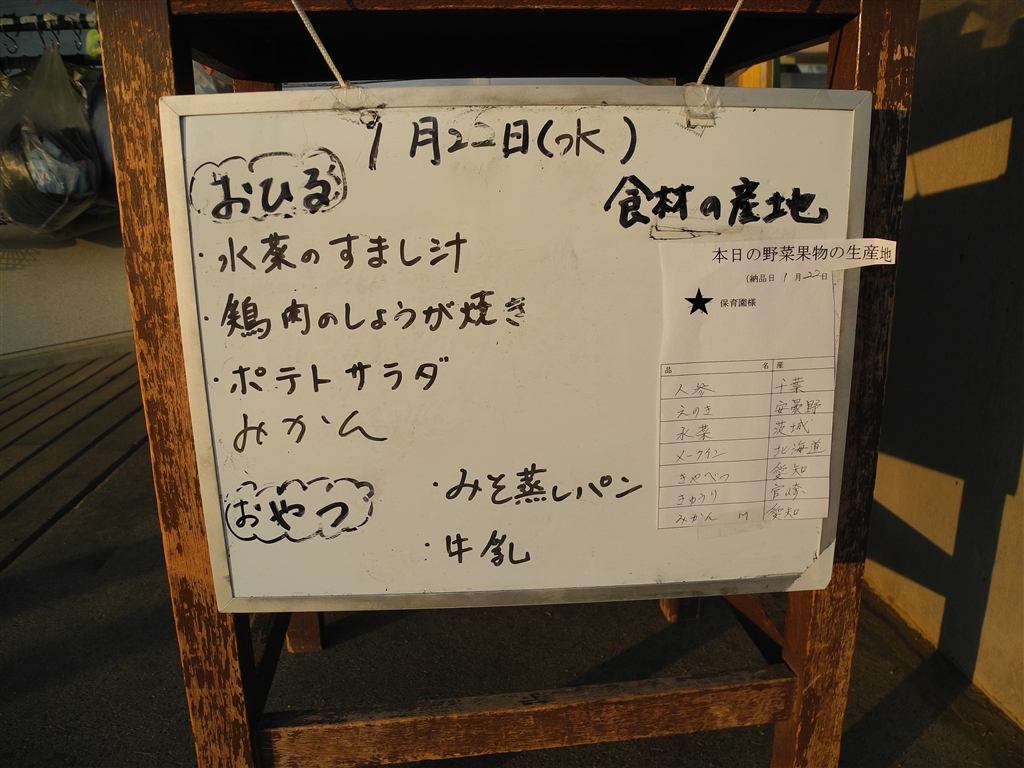 1月22日(水)
おひる
・水菜のすまし汁
・鶏肉のしょうが焼き
・ポテトサラダ
みかん
おやつ
・みそ蒸しパン
・牛乳
食材の産地
本日の野菜果物の生産地
(納品日 1月22日
★ 保育園様
品名 産
人参 千葉
えのき 安曇野
水菜 茨城
メークイン 北海道
きゃべつ 愛知
きゅうり 宮崎
みかん M 愛知